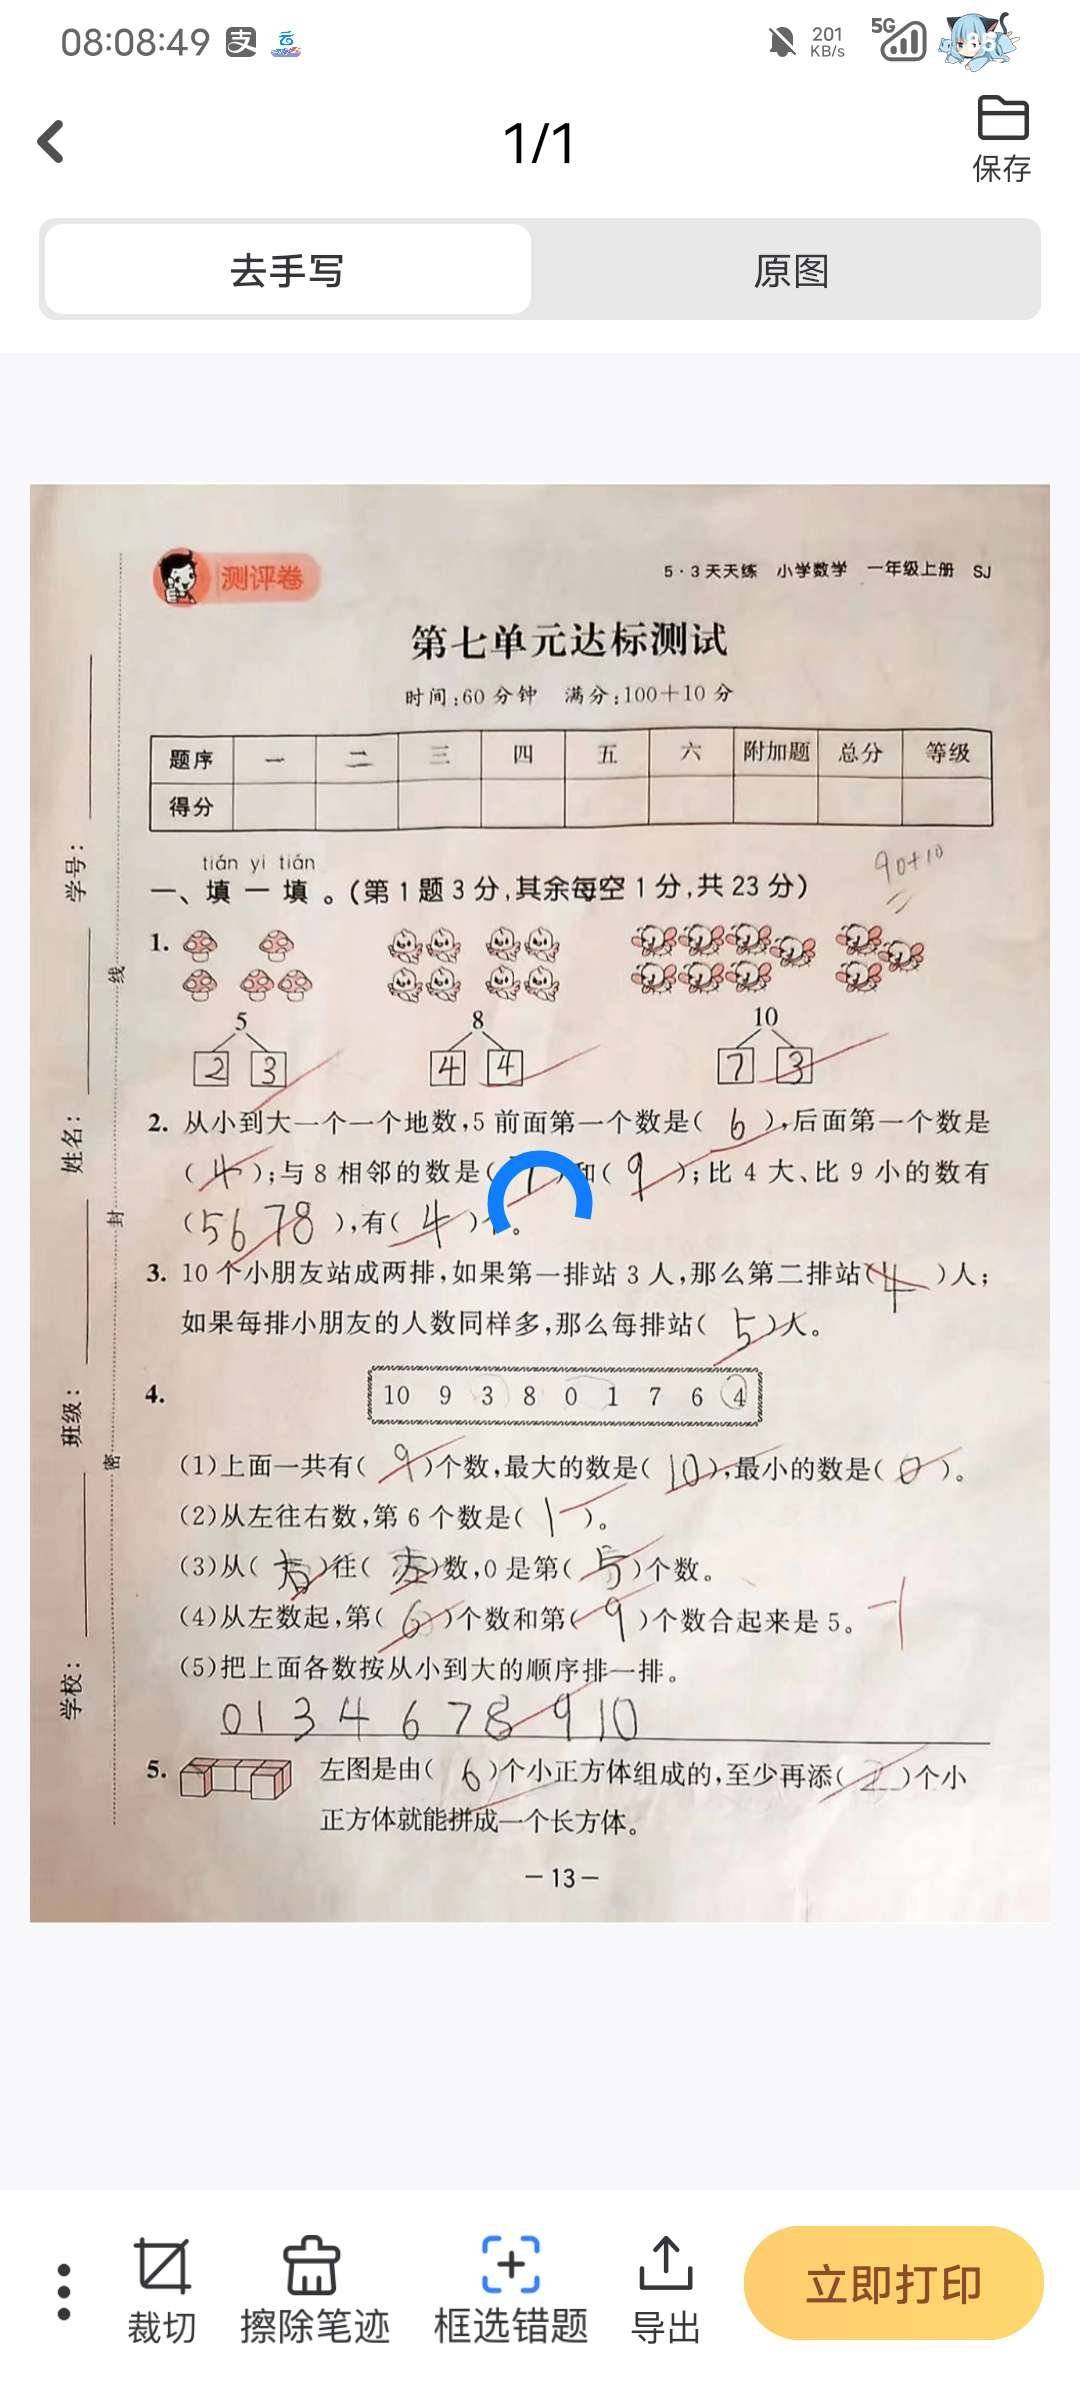 08:08:49 支 云 201 KB/s 5G 85
1/1
保存
去手写 原图
测评卷
5·3天天练 小学数学 一年级上册 SJ
第七单元达标测试
时间:60分钟 满分:100+10分
题序 一 二 三 四 五 六 附加题 总分 等级
得分
90+10
tián yi tián
一、填一填。(第1题3分,其余每空1分,共23分)
1.
5 8 10
2 3 4 4 7 3
2. 从小到大一个一个地数,5前面第一个数是( 6 ),后面第一个数是
( 4 );与8相邻的数是( 7 )和( 9 );比4大、比9小的数有
(5678),有( 4 )个。
3. 10个小朋友站成两排,如果第一排站3人,那么第二排站( 4 )人;
如果每排小朋友的人数同样多,那么每排站( 5 )人。
4. 10 9 3 8 0 1 7 6 4
(1)上面一共有( 9 )个数,最大的数是( 10 ),最小的数是( 0 )。
(2)从左往右数,第6个数是( 1 )。
(3)从( 右 )往( 左 )数,0是第( 5 )个数。
(4)从左数起,第( 6 )个数和第( 9 )个数合起来是5。 -1
(5)把上面各数按从小到大的顺序排一排。
0 1 3 4 6 7 8 9 10
5. 左图是由( 6 )个小正方体组成的,至少再添( 2 )个小
正方体就能拼成一个长方体。
—13—
学号:
姓名:
班级:
学校:
线
封
密
裁切 擦除笔迹 框选错题 导出 立即打印